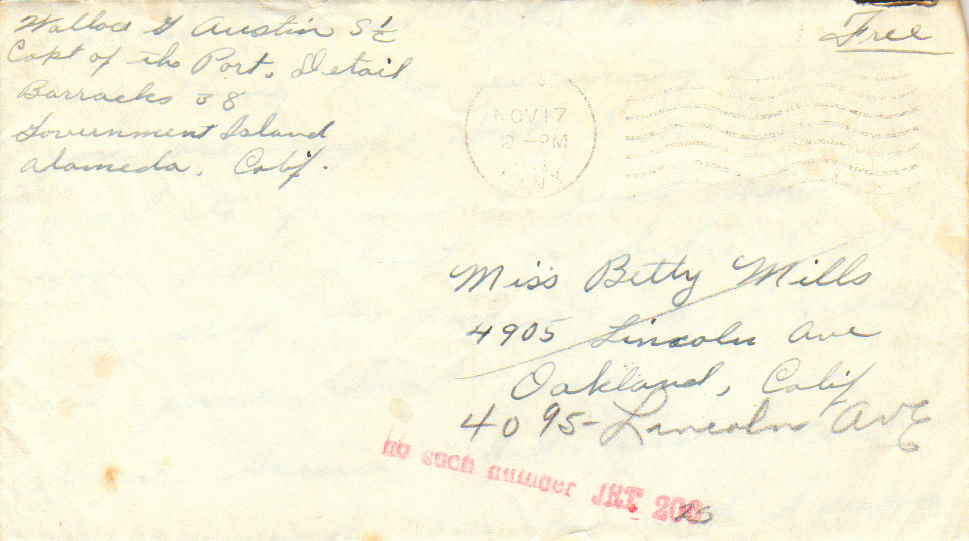 Wallace G Austin S 1/c
Capt of the Port, Detail
Barracks 38
Government Island
Alameda, Calif.
Free
NOV 17
PM
Miss Betty Mills
4905 Lincoln Ave
Oakland, Calif
4095 - Lincoln Ave
no such number